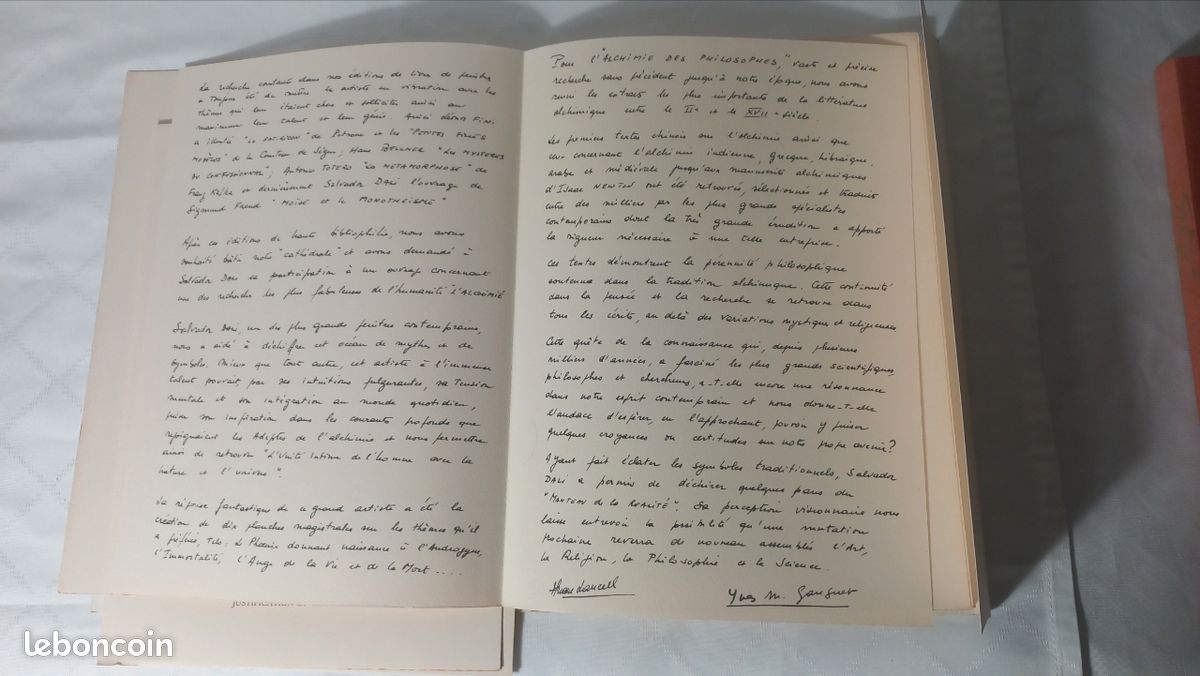 La recherche constante dans nos éditions de livres de peintres
a toujours été de mettre le artiste en vibration avec les
thèmes qui leur étaient chers et sollicite ainsi au
maximum leur talent et leur génie. Ainsi Léonor FINI
a illustré "Le SATIRICON" de Pétrone et les "PETITES FILLES
MODÈLES" de la Comtesse de Ségur; Hans BELLMER "LES MYSTÈRES
DU CONFESSIONNAL"; Antonio TOTERO "LA METAMORPHOSE" de
Franz Kafka et dernièrement Salvador DALI l'ouvrage de
Sigmund Freud "MOÏSE et le MONOTHÉISME"
Après ces éditions de haute bibliophilie, nous avons
souhaité bâtir notre "cathédrale" et avons demandé à
Salvador Dali sa participation à un ouvrage concernant
une des recherches les plus fabuleuses de l'humanité "L'ALCHIMIE"
Salvador Dali, un des plus grands peintres contemporains,
nous a aidé à déchiffrer cet océan de mythes et de
symboles. Mieux que tout autre, cet artiste à l'immense
talent pouvait, par ses intuitions fulgurantes, sa tension
mentale et son intégration au monde quotidien,
puiser son inspiration dans les courants profonds que
rejoignaient les Adeptes de l'alchimie et nous permettre
ainsi de retrouver "L'Unité intime de l'homme avec la
nature et l'univers".
La réponse fantastique de ce grand artiste a été la
création de dix planches magistrales sur les thèmes qu'il
a préférés, tels: Le Phœnix donnant naissance à l'Androgyne,
l'Immortalité, l'Ange de la Vie et de la Mort....
Pour l'"ALCHIMIE DES PHILOSOPHES," vaste et précise
recherche sans précédent jusqu'à notre époque, nous avons
réuni les extraits les plus importants de la littérature
alchimique entre le IIe et le XVIIe siècle.
Les premiers textes chinois sur l'Alchimie ainsi que
ceux concernant l'alchimie indienne, grecque, hébraïque,
arabe et médiévale jusqu'aux manuscrits alchimiques
d'Isaac NEWTON ont été retrouvés, sélectionnés et traduits
entre des milliers par les plus grands spécialistes
contemporains dont la très grande érudition a apporté
la rigueur nécessaire à une telle entreprise.
Ces textes démontrent la pérennité philosophique
soutenue dans la tradition alchimique. Cette continuité
dans la pensée et la recherche se retrouve dans
tous les écrits, au delà des variations mystiques et religieuses
Cette quête de la connaissance qui, depuis plusieurs
milliers d'années, a fasciné les plus grands scientifiques,
philosophes et chercheurs, a-t-elle encore une résonnance
dans notre esprit contemporain et nous donne-t-elle
l'audace d'espérer, en l'approchant, pouvoir y puiser
quelques croyances ou certitudes sur notre propre avenir?
Ayant fait éclater les symboles traditionnels, Salvador
DALI a permis de déchirer quelques pans du
"MANTEAU de la RÉALITÉ". Sa perception visionnaire nous
laisse entrevoir la possibilité qu'une mutation
prochaine reverra de nouveau assemblés l'Art,
la Religion, la Philosophie et la Science.
Yves M.
leboncoin